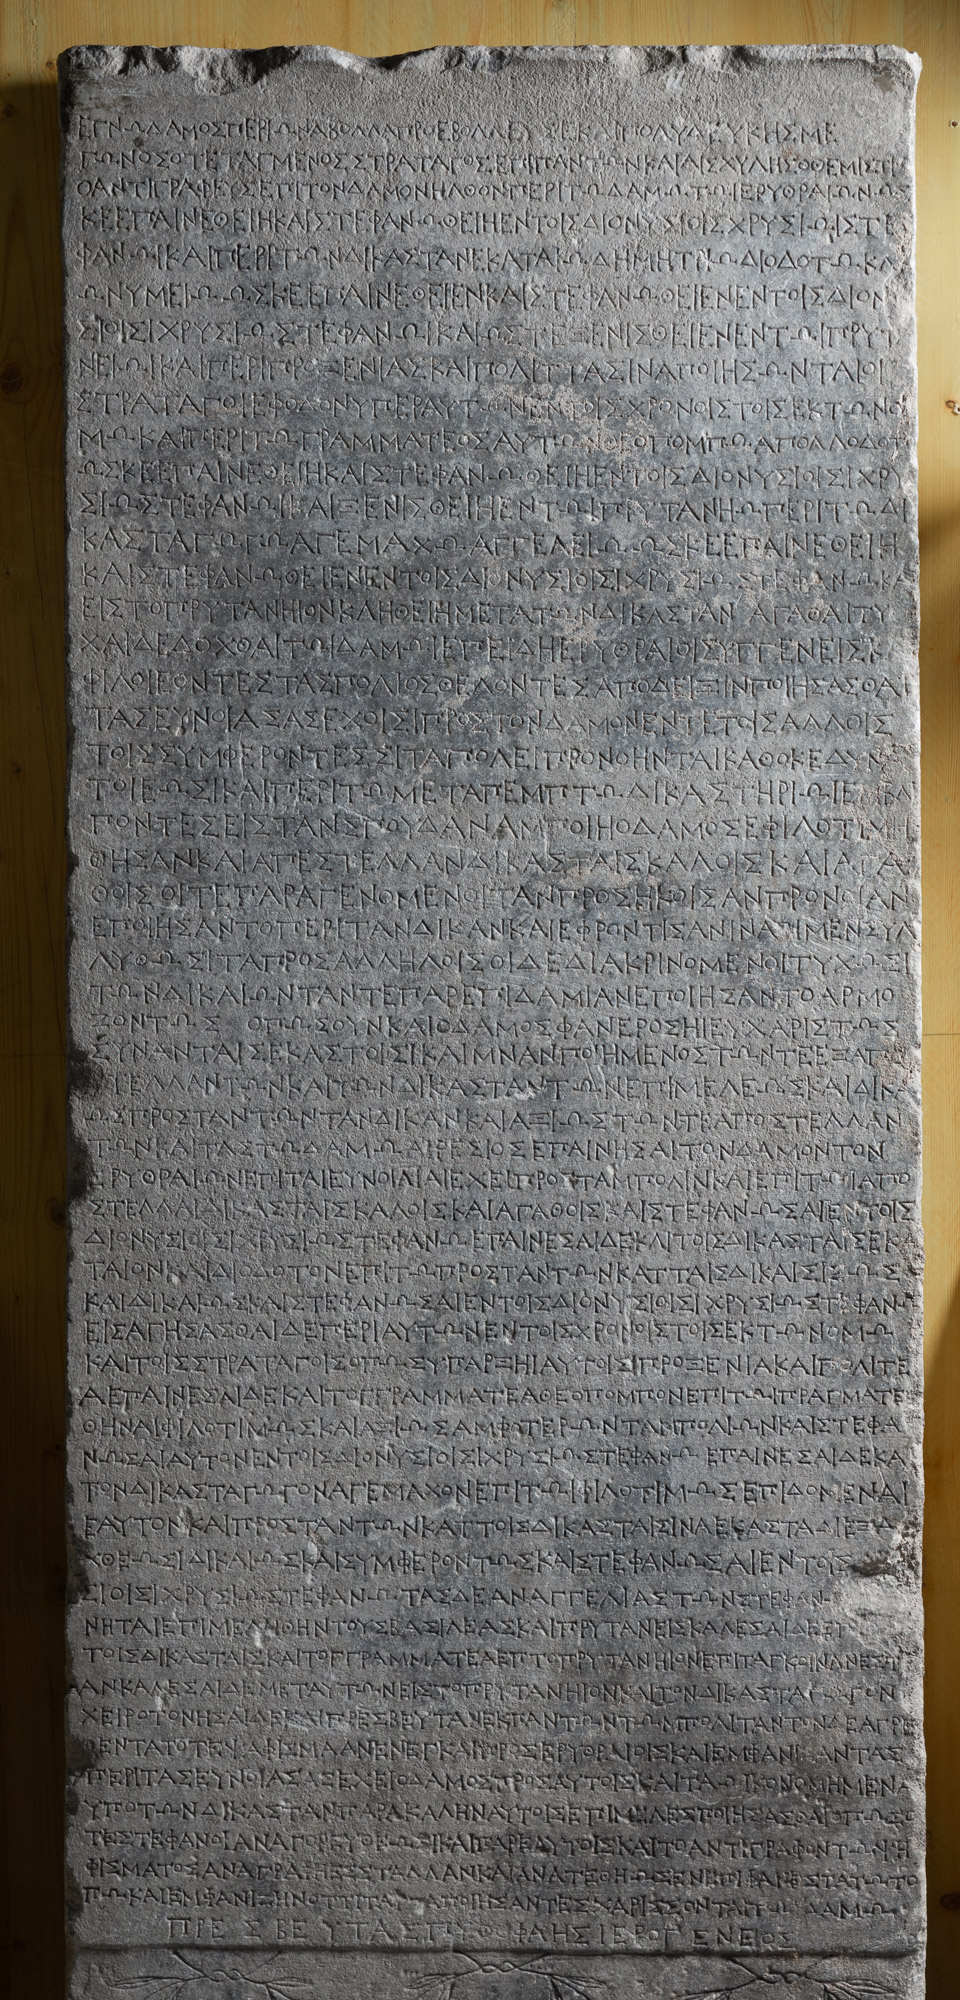 ΕΓΝΩΔΑΜΟΣΠΕΡΙΩΝΑΒΟΛΛΑΠΡΟΕΒΟΛΛΕΥΣΕΚΑΙΠΟΛΥΔΕΥΚΗΣΜΕ
ΓΩΝΟΣΟΤΕΤΑΓΜΕΝΟΣΣΤΡΑΤΑΓΟΣΕΠΙΠΑΝΤΩΝΚΑΙΑΙΣΧΥΛΗΣΟΘΕΜΙΣΤΙ
ΟΑΝΤΙΓΡΑΦΕΥΣΕΠΙΤΟΝΔΑΜΟΝΗΛΘΟΝΠΕΡΙΤΩΔΑΜΩΤΩΙΕΡΥΘΡΑΙΩΝΩΣ
ΚΕΕΠΑΙΝΕΘΕΙΗΚΑΙΣΤΕΦΑΝΩΘΕΙΗΕΝΤΟΙΣΔΙΟΝΥΣΙΟΙΣΧΡΥΣΙΩΙΣΤΕ
ΦΑΝΩΙΚΑΙΠΕΡΙΤΩΝΔΙΚΑΣΤΑΝΕΚΑΤΑΙΩΔΗΜΗΤΡΙΩΔΙΟΔΟΤΩΚΛ
ΩΝΥΜΕΙΩΩΣΚΕΕΠΑΙΝΕΘΕΙΕΝΚΑΙΣΤΕΦΑΝΩΘΕΙΕΝΕΝΤΟΙΣΔΙΟΝ
ΣΙΟΙΣΙΧΡΥΣΙΩΣΤΕΦΑΝΩΙΚΑΙΩΣΤΕΞΕΝΙΣΘΕΙΕΝΕΝΤΩΙΠΡΥΤ
ΝΕΙΩΙΚΑΙΠΕΡΙΠΡΟΞΕΝΙΑΣΚΑΙΠΟΛΙΤΤΑΣΙΝΑΠΟΙΗΣΩΝΤΑΙΟΙ
ΣΤΡΑΤΑΓΟΙΕΦΟΔΟΝΥΠΕΡΑΥΤΩΝΕΝΤΟΙΣΧΡΟΝΟΙΣΤΟΙΣΕΚΤΩΝΟ
ΜΩΚΑΙΠΕΡΙΤΩΓΡΑΜΜΑΤΕΟΣΑΥΤΩΝΘΕΟΠΟΜΠΩΑΠΟΛΛΟΔΟΤ
ΩΣΚΕΕΠΑΙΝΕΘΕΙΗΚΑΙΣΤΕΦΑΝΩΘΕΙΗΕΝΤΟΙΣΔΙΟΝΥΣΙΟΙΣΙΧΡΥ
ΣΙΩΣΤΕΦΑΝΩΙΚΑΙΞΕΝΙΣΘΕΙΗΕΝΤΩΙΠΡΥΤΑΝΗΩΠΕΡΙΤΩΔΙ
ΚΑΣΤΑΓΩΓΩΑΓΕΜΑΧΩΑΓΓΕΛΕΙΩΩΣΚΕΕΠΑΙΝΕΘΕΙΗ
ΚΑΙΣΤΕΦΑΝΩΘΕΙΕΝΕΝΤΟΙΣΔΙΟΝΥΣΙΟΙΣΙΧΡΥΣΙΩΣΤΕΦΑΝΩΚΑ
ΕΙΣΤΟΠΡΥΤΑΝΗΙΟΝΚΛΗΘΕΙΗΜΕΤΑΤΩΝΔΙΚΑΣΤΑΝ ΑΓΑΘΑΙΤΥ
ΧΑΙΔΕΔΟΧΘΑΙΤΩΙΔΑΜΩΙΕΠΕΙΔΗΕΡΥΘΡΑΙΟΙΣΥΓΓΕΝΕΙΣΚ
ΦΙΛΟΙΕΟΝΤΕΣΤΑΣΠΟΛΙΟΣΘΕΛΟΝΤΕΣΑΠΟΔΕΙΞΙΝΠΟΙΗΣΑΣΘΑΙ
ΤΑΣΕΥΝΟΙΑΣΑΣΕΧΟΙΣΙΠΡΟΣΤΟΝΔΑΜΟΝΕΝΤΕΤΟΙΣΑΛΛΟΙΣ
ΤΟΙΣΣΥΜΦΕΡΟΝΤΕΣΣΙΤΑΠΟΛΕΙΠΡΟΝΟΗΝΤΑΙΚΑΘΟΚΕΔΥΝ
ΤΟΙΕΩΣΙΚΑΙΠΕΡΙΤΩΜΕΤΑΠΕΜΠΤΩΔΙΚΑΣΤΗΡΙΩΙΕΜΒΛ
ΠΟΝΤΕΣΕΙΣΤΑΝΣΠΟΥΔΑΝΑΜΠΟΙΗΟΔΑΜΟΣΕΦΙΛΟΤΙΜΗ
ΘΗΣΑΝΚΑΙΑΠΕΣΤΕΛΛΑΝΔΙΚΑΣΤΑΙΣΚΑΛΟΙΣΚΑΙΑΓΑ
ΘΟΙΣΟΙΤΕΠΑΡΑΓΕΝΟΜΕΝΟΙΤΑΝΠΡΟΣΗΚΟΙΣΑΝΠΡΟΝΟΙΑΝ
ΕΠΟΙΗΣΑΝΤΟΠΕΡΙΤΑΝΔΙΚΑΝΚΑΙΕΦΡΟΝΤΙΣΑΝΙΝΑΤΙΜΕΝΣΥΛ
ΛΥΘΩΣΙΤΑΠΡΟΣΑΛΛΗΛΟΙΣΟΙΔΕΔΙΑΚΡΙΝΟΜΕΝΟΙΤΥΧΩΣΙ
ΤΩΝΔΙΚΑΙΩΝΤΑΝΤΕΠΑΡΕΠΙΔΑΜΙΑΝΕΠΟΙΗΣΑΝΤΟΑΡΜΟ
ΖΟΝΤΩΣ ΟΠΩΣΟΥΝΚΑΙΟΔΑΜΟΣΦΑΝΕΡΟΣΗΙΕΥΧΑΡΙΣΤΩΣ
ΣΥΝΑΝΤΑΙΣΕΚΑΣΤΟΙΣΙΚΑΙΜΝΑΝΠΟΙΗΜΕΝΟΣΤΩΝΤΕΕΞΑΠ
ΤΕΛΛΑΝΤΩΝΚΑΙΤΩΝΔΙΚΑΣΤΑΝΤΩΝΕΠΙΜΕΛΕΩΣΚΑΙΔΙΚ
ΩΣΠΡΟΣΤΑΝΤΩΝΤΑΝΔΙΚΑΝΚΑΙΑΞΙΩΣΤΩΝΤΕΑΠΟΣΤΕΛΛΑΝ
ΤΩΝΚΑΙΤΑΣΤΩΔΑΜΩΑΙΡΕΣΙΟΣΕΠΑΙΝΗΣΑΙΤΟΝΔΑΜΟΝΤΟΝ
ΕΡΥΘΡΑΙΩΝΕΠΙΤΑΙΕΥΝΟΙΑΙΑΙΕΧΕΙΠΡΟΣΤΑΜΠΟΛΙΝΚΑΙΕΠΙΤΩΙΑΠΟ
ΣΤΕΛΛΑΙΔΙΚΑΣΤΑΙΣΚΑΛΟΙΣΚΑΙΑΓΑΘΟΙΣΚΑΙΣΤΕΦΑΝΩΣΑΙΕΝΤΟΙΣ
ΔΙΟΝΥΣΙΟΙΣΙΧΡΥΣΙΩΣΤΕΦΑΝΩΕΠΑΙΝΕΣΑΙΔΕΚΑΙΤΟΙΣΔΙΚΑΣΤΑΙΣΕΚΑ
ΤΑΙΟΝΚΑΙΔΙΟΔΟΤΟΝΕΠΙΤΩΠΡΟΣΤΑΝΤΩΝΚΑΤΤΑΙΣΔΙΚΑΙΣΙΣΩΣ
ΚΑΙΔΙΚΑΙΩΣΚΑΙΣΤΕΦΑΝΩΣΑΙΕΝΤΟΙΣΔΙΟΝΥΣΙΟΙΣΙΧΡΥΣΙΩΣΤΕΦΑΝΩ
ΕΙΣΑΓΗΣΑΣΘΑΙΔΕΠΕΡΙΑΥΤΩΝΕΝΤΟΙΣΧΡΟΝΟΙΣΤΟΙΣΕΚΤΩΝΟΜΩ
ΚΑΙΤΟΙΣΣΤΡΑΤΑΓΟΙΣΟΠΩΣΥΠΑΡΞΗΙΑΥΤΟΙΣΙΠΡΟΞΕΝΙΑΚΑΙΠΟΛΙΤΕ
ΑΕΠΑΙΝΕΣΑΙΔΕΚΑΙΤΟΓΓΡΑΜΜΑΤΕΑΘΕΟΠΟΜΠΟΝΕΠΙΤΩΙΠΡΑΓΜΑΤΕ
ΘΗΝΑΙΦΙΛΟΤΙΜΩΣΚΑΙΑΞΙΩΣΑΜΦΟΤΕΡΩΝΤΑΜΠΟΛΙΩΝΚΑΙΣΤΕΦΑ
ΝΩΣΑΙΑΥΤΟΝΕΝΤΟΙΣΔΙΟΝΥΣΙΟΙΣΙΧΡΥΣΙΩΣΤΕΦΑΝΩ ΕΠΑΙΝΕΣΑΙΔΕΚΑ
ΤΟΝΔΙΚΑΣΤΑΓΩΓΟΝΑΓΕΜΑΧΟΝΕΠΙΤΩΙΦΙΛΟΤΙΜΩΣΕΠΙΔΟΜΕΝΑΙ
ΕΑΥΤΟΝΚΑΙΠΡΟΣΤΑΝΤΩΝΚΑΤΤΟΙΣΔΙΚΑΣΤΑΙΣΙΝΑΕΚΑΣΤΑΔΙΕΞΑ
ΧΘΕΩΣΙΔΙΚΑΙΩΣΚΑΙΣΥΜΦΕΡΟΝΤΩΣΚΑΙΣΤΕΦΑΝΩΣΑΙΕΝΤΟΙΣ
ΣΙΟΙΣΙΧΡΥΣΙΩΣΤΕΦΑΝΩ ΤΑΣΔΕΑΝΑΓΓΕΛΙΑΣΤΩΝΣΤΕΦΑΝ
ΝΗΤΑΙΕΠΙΜΕΛΗΘΗΝΤΟΥΣΒΑΣΙΛΕΑΣΚΑΙΠΡΥΤΑΝΕΙΣΚΑΛΕΣΑΙΔΕ
ΤΟΙΣΔΙΚΑΣΤΑΙΣΚΑΙΤΟΓΓΡΑΜΜΑΤΕΑΕΠΙΤΟΠΡΥΤΑΝΗΙΟΝΕΠΙΤΑΓΚΟΙΝΑΝΕΣΤ
ΑΝΚΑΛΕΣΑΙΔΕΜΕΤΑΥΤΩΝΕΙΣΤΟΠΡΥΤΑΝΗΙΟΝΚΑΙΤΟΝΔΙΚΑΣΤΑΓΩΓΟΝ
ΧΕΙΡΟΤΟΝΗΣΑΙΔΕΚΑΙΠΡΕΣΒΕΥΤΑΝΕΚΠΑΝΤΩΝΤΩΜΠΟΛΙΤΑΝΤΟΝΔΕΑΓΡΕ
ΘΕΝΤΑΤΟΤΕΨΑΦΙΣΜΑΑΝΕΝΕΓΚΑΙΠΡΟΣΕΡΥΘΡΑΙΟΙΣΚΑΙΕΜΦΑΝΙΞΑΝΤΑΣ
ΠΕΡΙΤΑΣΕΥΝΟΙΑΣΑΣΕΧΕΙΟΔΑΜΟΣΠΡΟΣΑΥΤΟΙΣΚΑΙΤΑΩΙΚΟΝΟΜΗΜΕΝΑ
ΥΠΟΤΩΝΔΙΚΑΣΤΑΝΠΑΡΑΚΑΛΗΝΑΥΤΟΙΣΕΠΙΜΕΛΕΣΠΟΙΗΣΑΣΘΑΙΟΠΩΣΟ
ΤΕΣΤΕΦΑΝΟΙΑΝΑΓΟΡΕΥΘΕΩΣΙΚΑΙΠΑΡΕΑΥΤΟΙΣΚΑΙΤΟΑΝΤΙΓΡΑΦΟΝΤΩΨΗ
ΦΙΣΜΑΤΟΣΑΝΑΓΡΑΦΗΕΣΣΤΑΛΛΑΝΚΑΙΑΝΑΤΕΘΗΩΣΕΝΕΠΙΦΑΝΕΣΤΑΤΩΤΟ
ΠΩΚΑΙΕΜΦΑΝΙΞΗΝΟΤΤΙΤΑΥΤΑΠΟΙΗΣΑΝΤΕΣΧΑΡΙΣΣΟΝΤΑΙΤΩ ΔΑΜΩ
ΠΡΕΣΒΕΥΤΑΣΠΥΘΟΦΑΗΣΙΕΡΟΓΕΝΕΙΟΣ